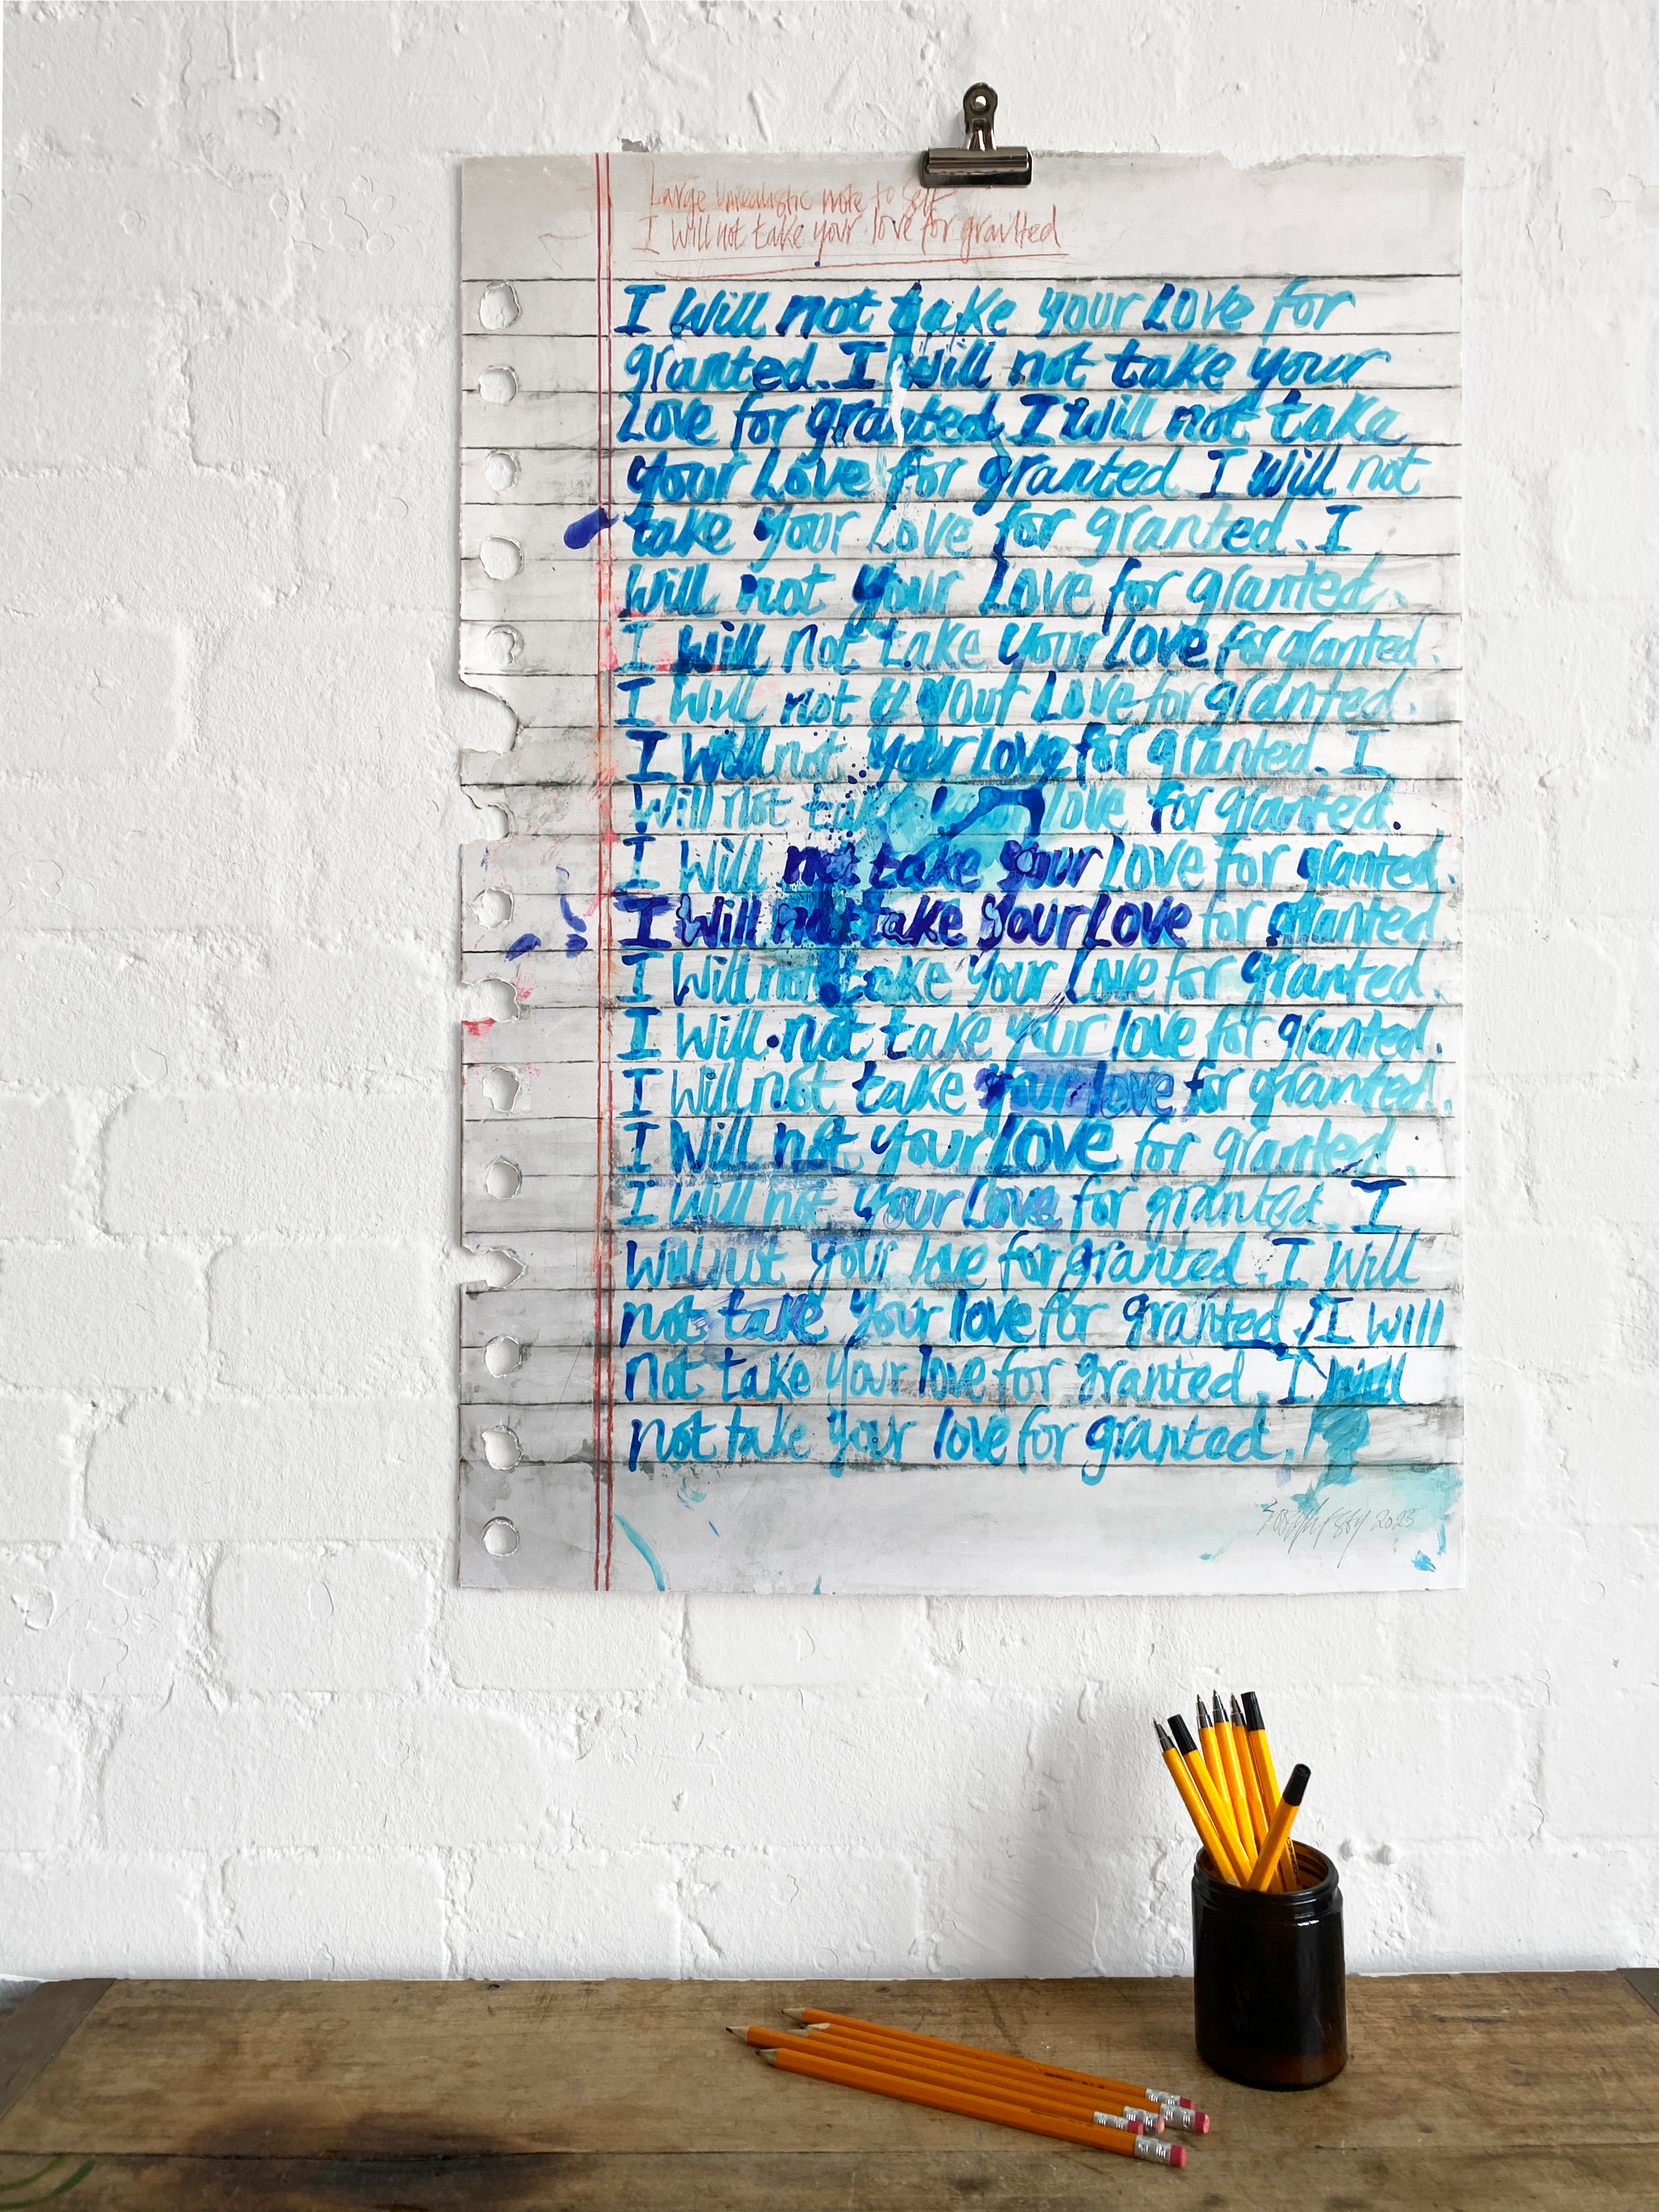 Large Unrealistic note to Self
I Will not take your love for grantted
I Will not take your Love for
granted. I will not take your
Love for granted I Will not take
your Love for granted I Will not
take your Love for granted. I
Will not your Love for granted.
I will not take your Love for granted.
I Will not tt your Love for granted.
I Will not your Love for granted. I
Will not take your love for granted.
I Will not take your Love for granted.
I Will not take your Love for granted.
I Will not take your Love for granted.
I Will not take your love for granted.
I Will not take your love for granted.
I Will not your love for granted.
I Will not your Love for granted. I
Will not your love for granted. I Will
not take your love for granted. I will
not take your love for granted. I will
not take your love for granted.
2023